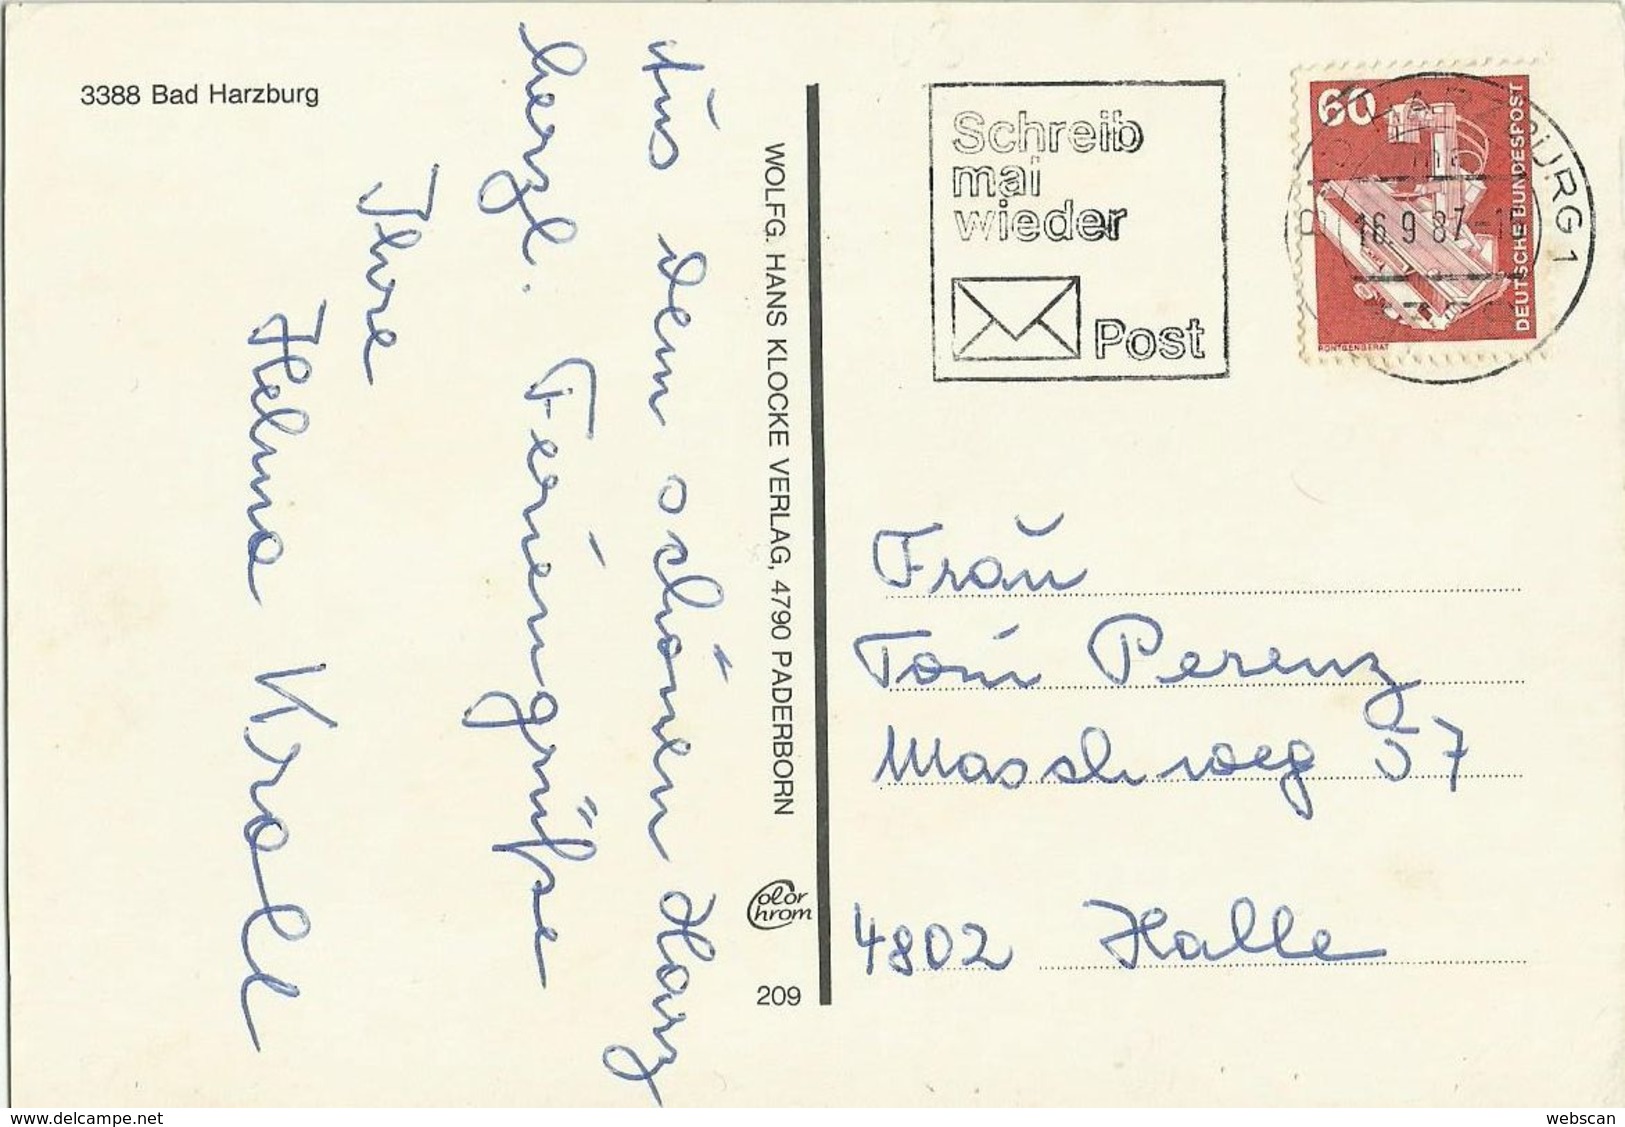 3388 Bad Harzburg
Aus dem schönen Harz
herzl. Feriengrüße
Ihre
Helma Kroll
WOLFG. HANS KLOCKE VERLAG, 4790 PADERBORN
Color
Chrom
209
Schreib
mal
wieder
Post
60
DEUTSCHE BUNDESPOST
RÖNTGENGERÄT
HARZBURG 1
16.9.87
Frau
Toni Perenz
Maschweg 57
4802 Halle
delcampe.net
webscan